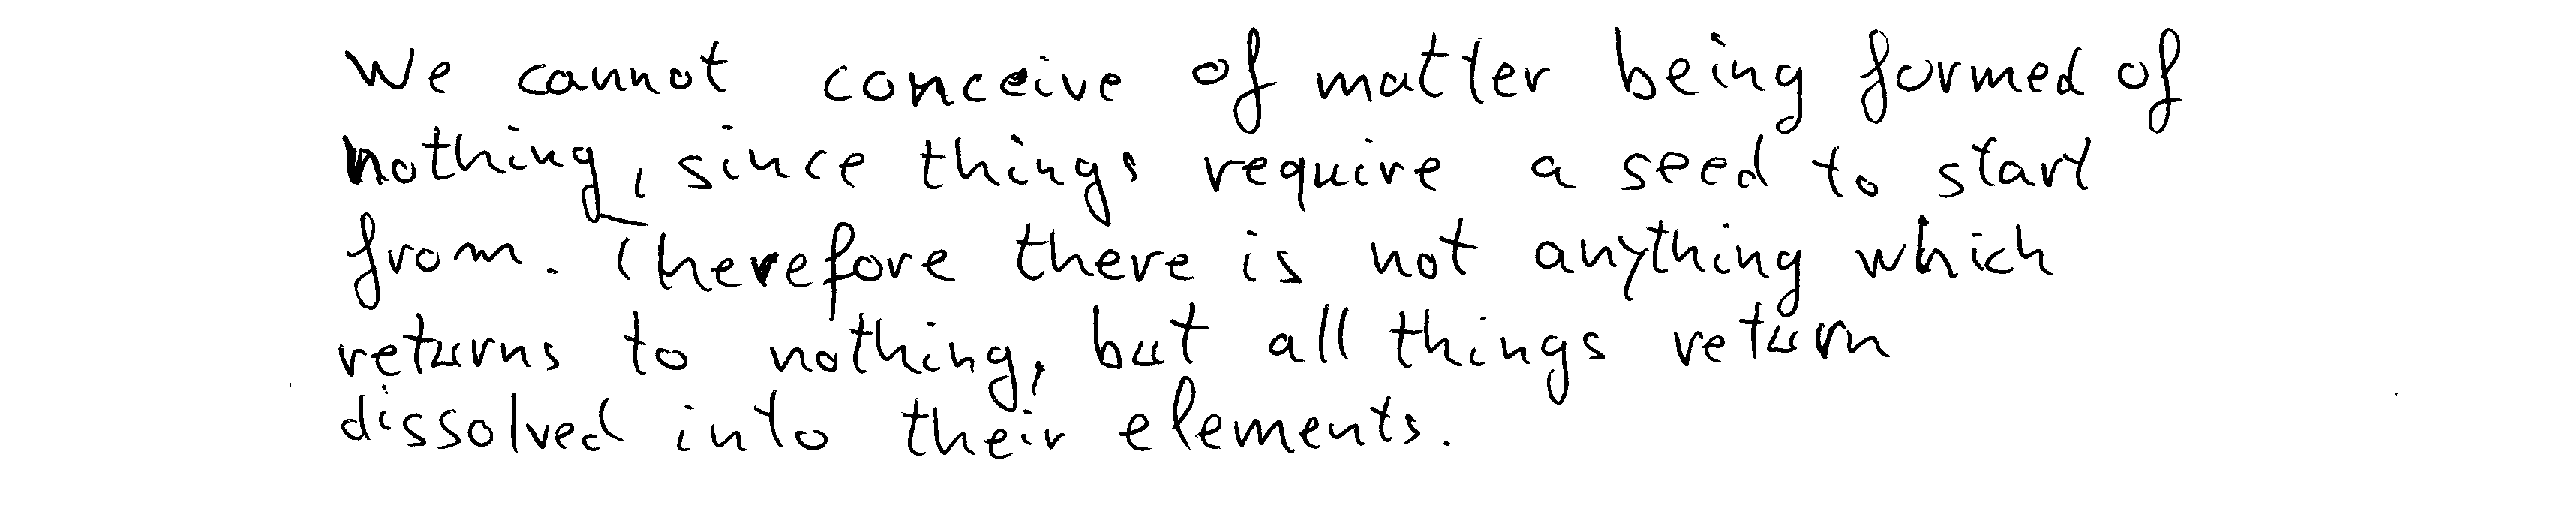 We cannot conceive of matter being formed of
nothing, since things require a seed to start
from. Therefore there is not anything which
returns to nothing, but all things return
dissolved into their elements.